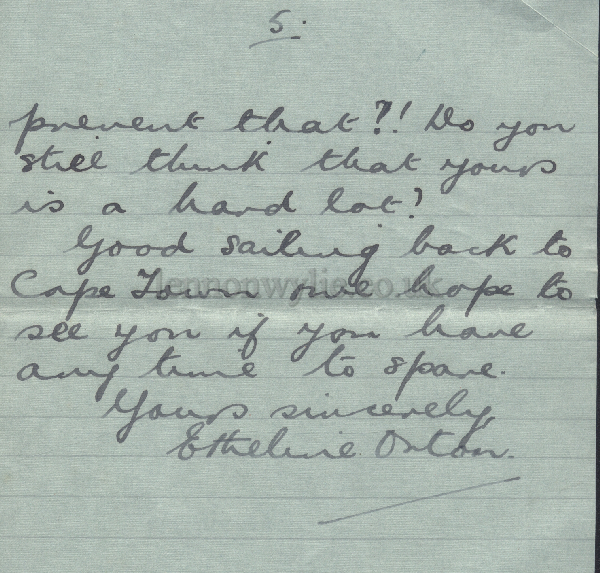 5.
prevent that?! Do you
still think that yours
is a hard lot?
Good sailing back to
Cape Town & we hope to
see you if you have
any time to spare.
Yours sincerely,
Etheline Orton.
lennonwylie.co.uk